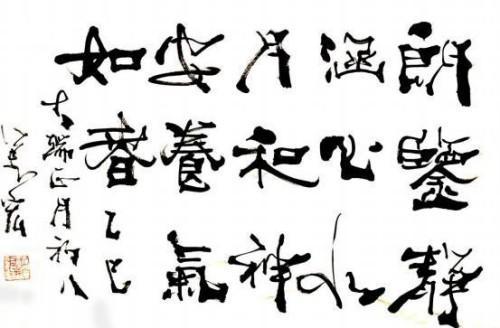 朗鑒靜
涵心水
月和神
安養氣
如春
乙巳
端正月初八